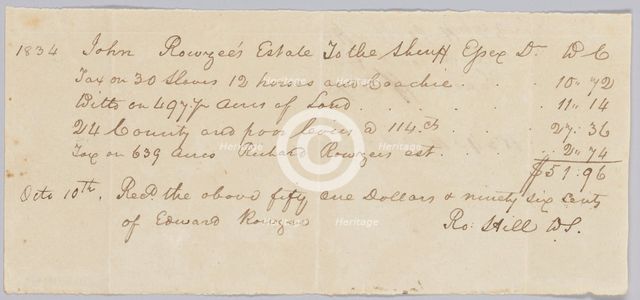 1834 John Rowzee's Estate To the Sheriff Essex Dr. D C
Tax on 30 Slaves 12 horses and Coachee . . 10,, 72
Ditto on 497¾ acres of Land . . . . . 11,, 14
24 County and poor levies @ 114 cts . . . 27,, 36
Tax on 639 acres Richard Rowzees est. . . 2,, 74
$51.96
Octo 10th. Recd. the above fifty one Dollars & ninety six cents
of Edward Rowzee Ro: Hill D.S.
Heritage
Heritage
Heritage
Heritage
Heritage
Heritage